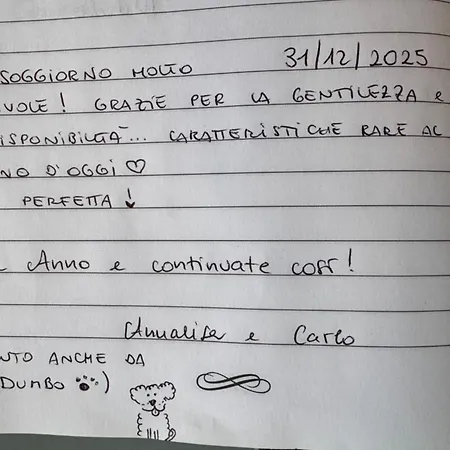 SOGGIORNO MOLTO 31/12/2025
VOLE! GRAZIE PER LA GENTILEZZA E
ISPONIBILITÀ... CARATTERISTICHE RARE AL
NO D'OGGI ♡
PERFETTA!
Anno e continuate così!
Annalisa e Carlo
UTO ANCHE DA
DUMBO 🐾)